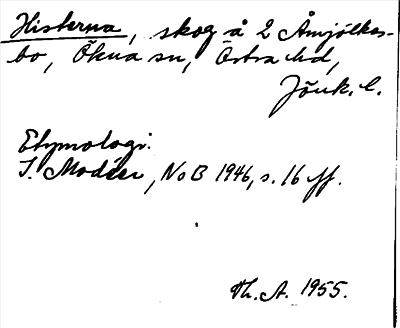 Histerna, skog å 2 Åmjölkes-
bo, Ökna sn, Östra hd,
Jönk. l.
Etymologi.
I. Modéer, NoB 1946, s. 16 ff.
Th. A. 1955.